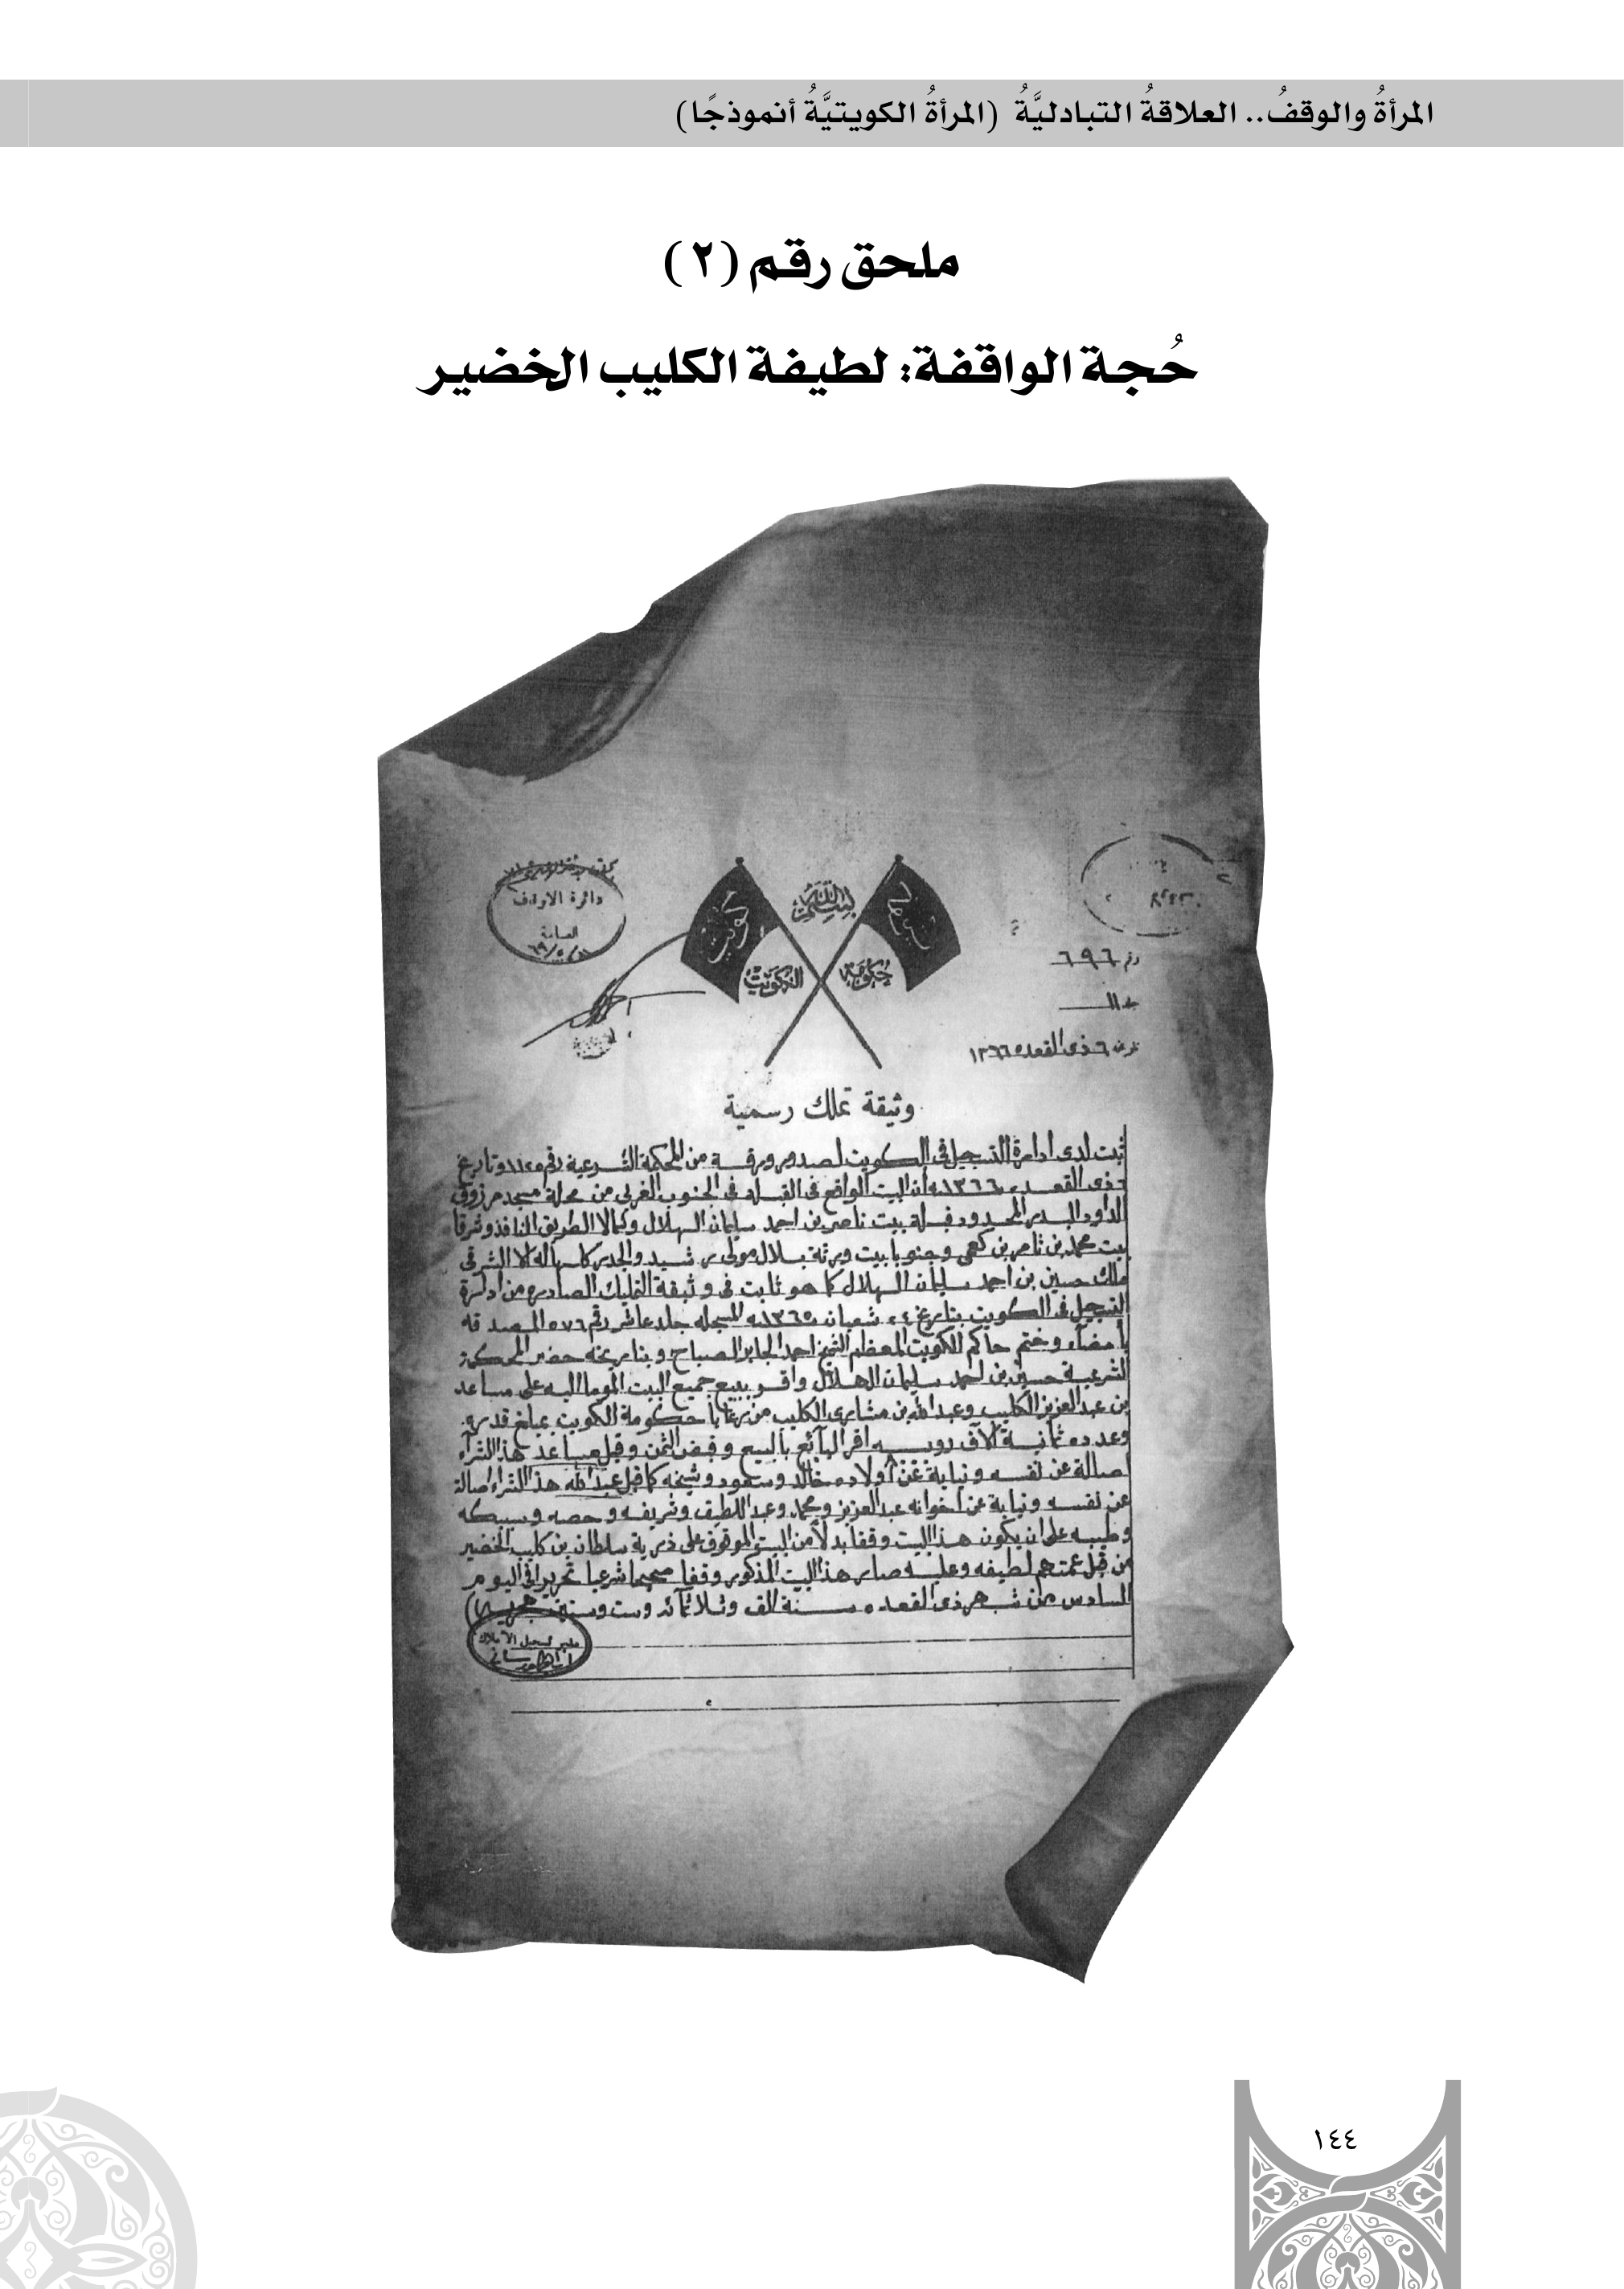 المرأةُ والوقفُ.. العلاقةُ التبادليَّةُ (المرأةُ الكويتيَّةُ أنموذجًا)
ملحق رقم (٢)
حُجة الواقفة: لطيفة الكليب الخضير
دائرة الاوقاف
العامة
كويت
حكومة
الكويت
رقم ٦٩٦
جلد ١١
٦ ذي القعده ١٣٦٦
وثيقة تملك رسمية
ثبت لدى ادارة التسجيل في الكويت لصدور ورقة من المحكمة الشرعية رقم ١١٢٥ وتاريخ
٦ ذي القعده ١٣٦٦ ان البيت الواقع في القبله في الجنوب الغربي من محلة مسجد مرزوق
الداود البدر المحدود قبلة بيت ناصر بن احمد سليمان الهلال وشمالا الطريق النافذ وشرقا
بيت محمد بن ناصر بن وجنوبا بيت ورثة بلال مولى بن شيد والجدر كلها له الا الشرقي
ملك حسين بن احمد سليمان الهلال كما هو ثابت في وثيقة التمليك الصادره من ادارة
التسجيل في الكويت بتاريخ شعبان ١٣٦٥ المسجله جلد عاشر رقم ٥٧٦ المصدقه
بامضاء وختم حاكم الكويت المعظم الشيخ احمد الجابر الصباح وبتاريخه حضر المحكمة
الشرعية حسين بن احمد سليمان الهلال واقر ببيع جميع البيت الموما اليه على مساعد
بن عبدالعزيز الكليب وعبدالله بن مشاري الكليب من رعايا حكومة الكويت بمبلغ قدره
وعدده ثمانية آلاف روبيه اقر البائع بالبيع وقبض الثمن وقبل مساعد هذا الشراء
اصالة عن نفسه ونيابة عن أولاده خالد وسعود وشيخه كما قبل عبدالله هذا الشراء اصالة
عن نفسه ونيابة عن اخوانه عبدالعزيز ومحمد وعبداللطيف وشريفه وحصه وسبيكه
وطيبه على ان يكون هذا البيت وقفا بدلا من البيت الموقوف على ذرية سلطان بن كليب الخضير
من قبل عمتهم لطيفه وعليه صار هذا البيت المذكور وقفا صحيحا شرعيا تحريرا في اليوم
السادس من شهر ذي القعده سنة الف وثلاثمائه وست وستين هجريه
مدير تسجيل الاملاك
١٤٤